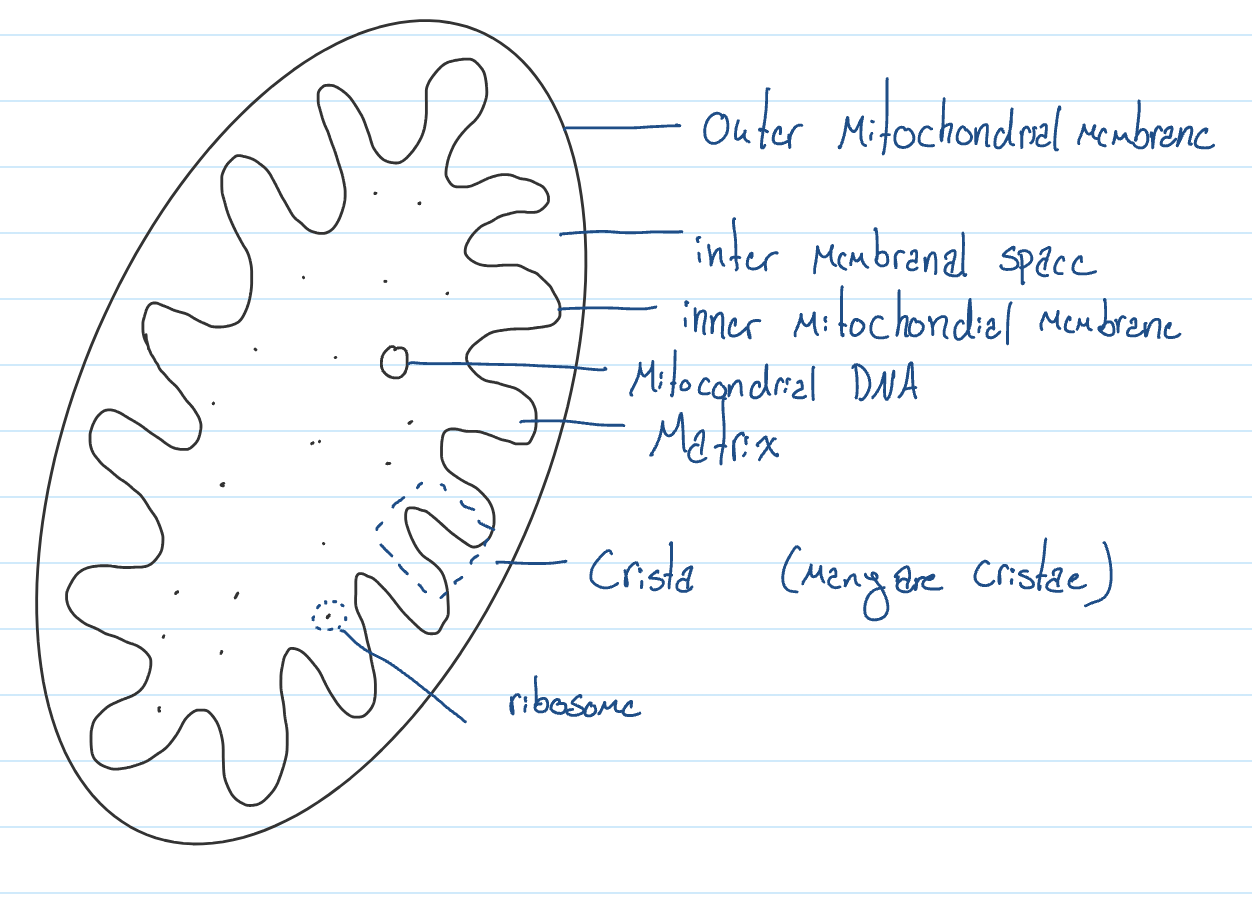 Outer Mitochondrial Membrane
inter Membranal space
inner Mitochondial Membrane
Mitocondrial DNA
Matrix
Crista (Many are Cristae)
ribosome